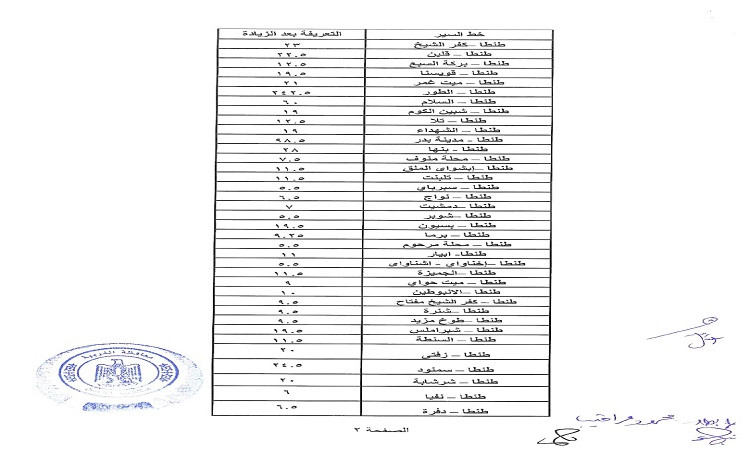 خط السير التعريفة بعد الزيادة
طنطا – كفر الشيخ ٢٣
طنطا – قلين ٢٢.٥
طنطا – بركة السبع ١٢.٥
طنطا – قويسنا ١٩.٥
طنطا – ميت غمر ٢١
طنطا – الطور ٢٤٢.٥
طنطا – السلام ٦٠
طنطا – شبين الكوم ١٩
طنطا – تلا ١٢.٥
طنطا – الشهداء ١٩
طنطا – مدينة بدر ٩٨.٥
طنطا – بنها ٢٨
طنطا – محلة منوف ٧.٥
طنطا – إبشواي الملق ١١.٥
طنطا – تلبنت ١١.٥
طنطا – سبرباي ٥.٥
طنطا – نواج ٦.٥
طنطا – دمشيت ٧
طنطا – شوبر ٥.٥
طنطا – بسيون ١٩.٥
طنطا – برما ٩.٢٥
طنطا – محلة مرحوم ٥.٥
طنطا – ابيار ١١
طنطا – إخناواي – اشناواي ٥.٥
طنطا – الجميزة ١١.٥
طنطا – ميت حواي ٩
طنطا – الانبوطين ١٠
طنطا – كفر الشيخ مفتاح ٩.٥
طنطا – شنرة ٩.٥
طنطا – طوخ مزيد ٩.٥
طنطا – شبراملس ١٩.٥
طنطا – السنطة ١١.٥
طنطا – زفتى ٢٠
طنطا – سمنود ٢٤.٥
طنطا – شرشابة ٢٠
طنطا – نفيا ٦
طنطا – دفرة ٦.٥
محافظة الغربية
الصفحة ٢